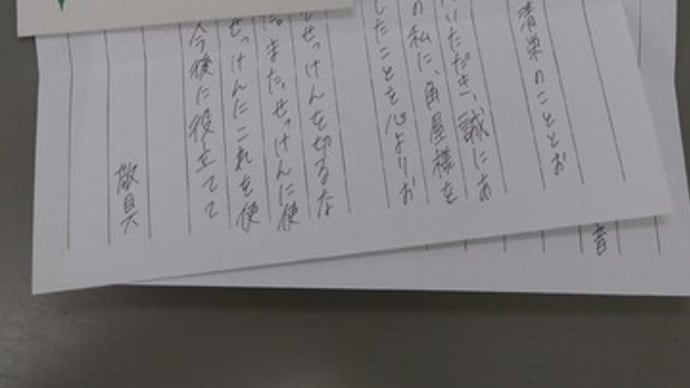 清栄のこととお
いただき、誠にお
の私に、角屋様を
したことを心よりお
せっけんを切るな
。また、せっけんに使
せっけんにこれを使
今後に役立てて
敬具
音